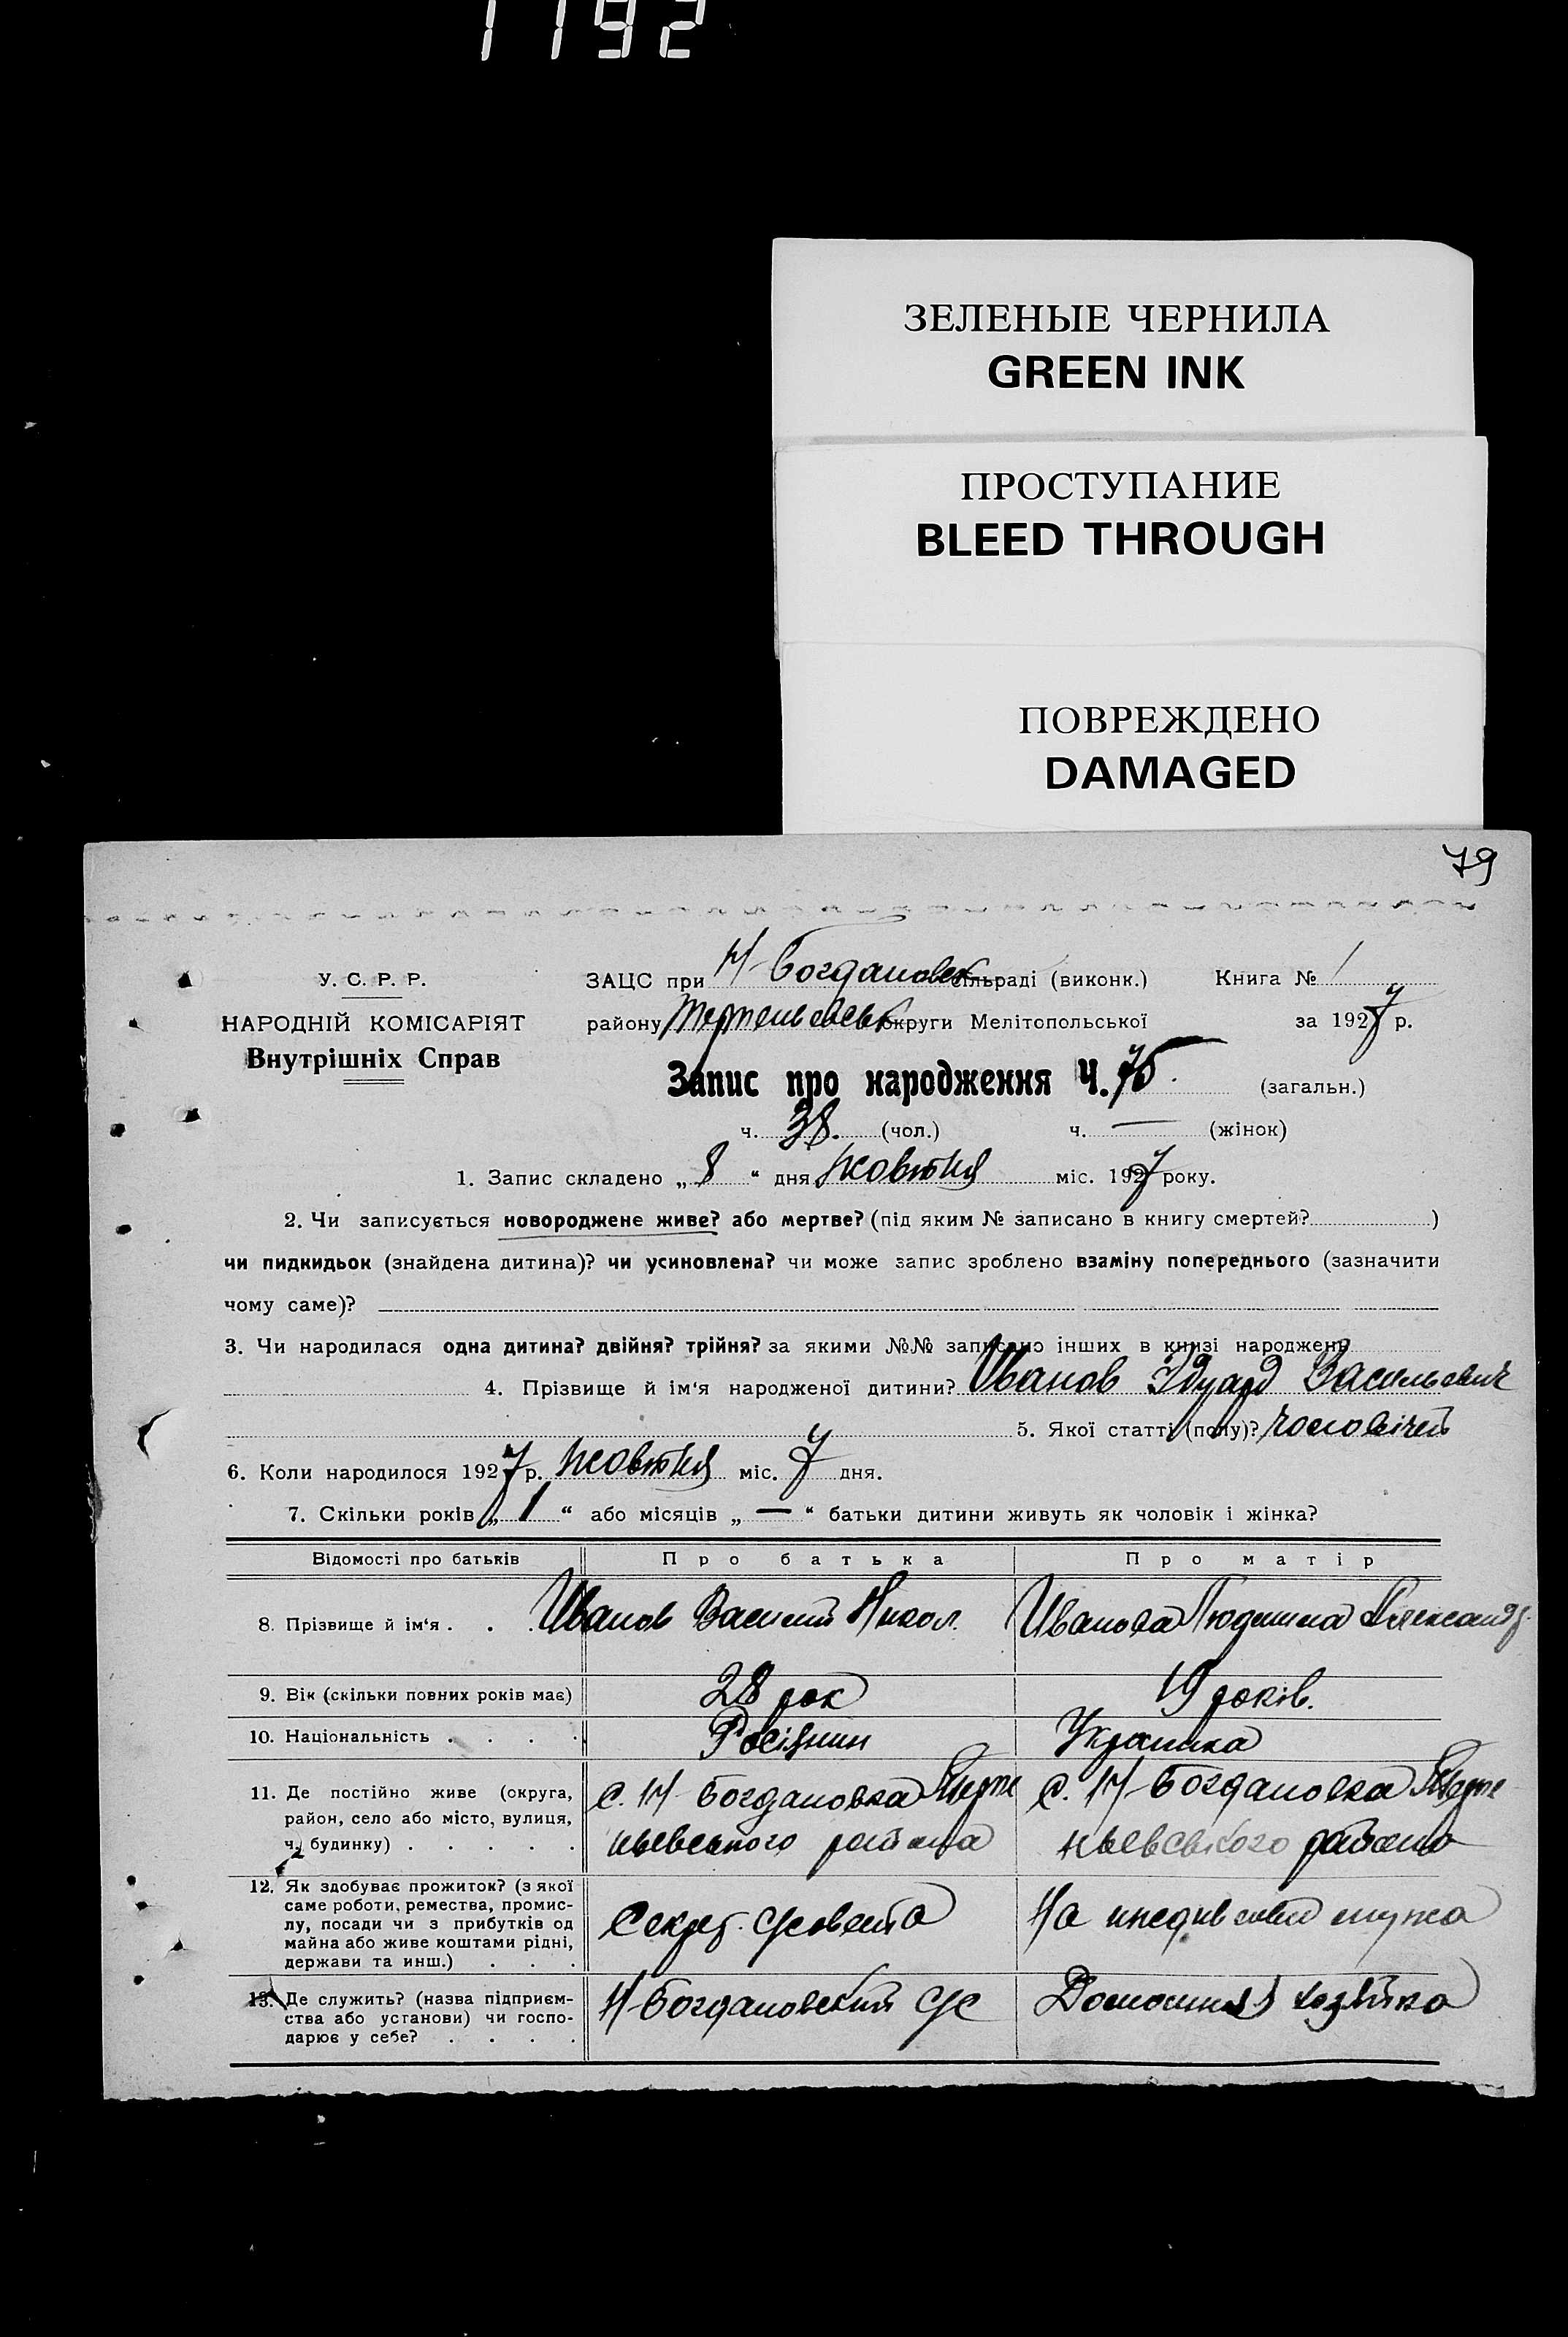 1192
ЗЕЛЕНЫЕ ЧЕРНИЛА
GREEN INK
ПРОСТУПАНИЕ
BLEED THROUGH
ПОВРЕЖДЕНО
DAMAGED
79
У. С. Р. Р.
НАРОДНІЙ КОМІСАРІЯТ
Внутрішніх Справ
ЗАЦС при Н-Богдановск сільраді (виконк.) Книга № 1
району Терпеньевськ округи Мелітопольської за 1927 р.
Запис про народження Ч. 75. (загальн.)
ч. 38. (чол.) ч. — (жінок)
1. Запис складено „ 8 “ дня жовтня міс. 1927 року.
2. Чи записується новороджене живе? або мертве? (під яким № записано в книгу смертей? )
чи пидкидьок (знайдена дитина)? чи усиновлена? чи може запис зроблено взаміну попереднього (зазначити
чому саме)?
3. Чи народилася одна дитина? двійня? трійня? за якими №№ записано інших в книзі народжень
4. Прізвище й ім‘я народженої дитини? Иванов Эдуард Васильевич
5. Якої статті (полу)? чоловічей
6. Коли народилося 1927 р. жовтня міс. 7 дня.
7. Скільки років „ 1 “ або місяців „ — “ батьки дитини живуть як чоловік і жінка?
Відомості про батьків Про батька Про матір
8. Прізвище й ім‘я . . . Иванов Василий Никол. Иванова Людмила Александр.
9. Вік (скільки повних років має) 28 рок 19 років.
10. Національність . . . . Росіянин Украинка
11. Де постійно живе (округа,
район, село або місто, вулиця,
ч. будинку) . . . . .
с. Н-Богдановка Терпе
ньевського района
с. Н-Богдановка Терпе
ньевського района
12. Як здобуває прожиток? (з якої
саме роботи, ремества, промис-
лу, посади чи з прибутків од
майна або живе коштами рідні,
держави та инш.) . . .
Секрет. с/совета
На иждив мужа
13. Де служить? (назва підприєм-
ства або установи) чи госпо-
дарює у себе? . . . .
Н-Богдановский с/с
Домашня хозяйка